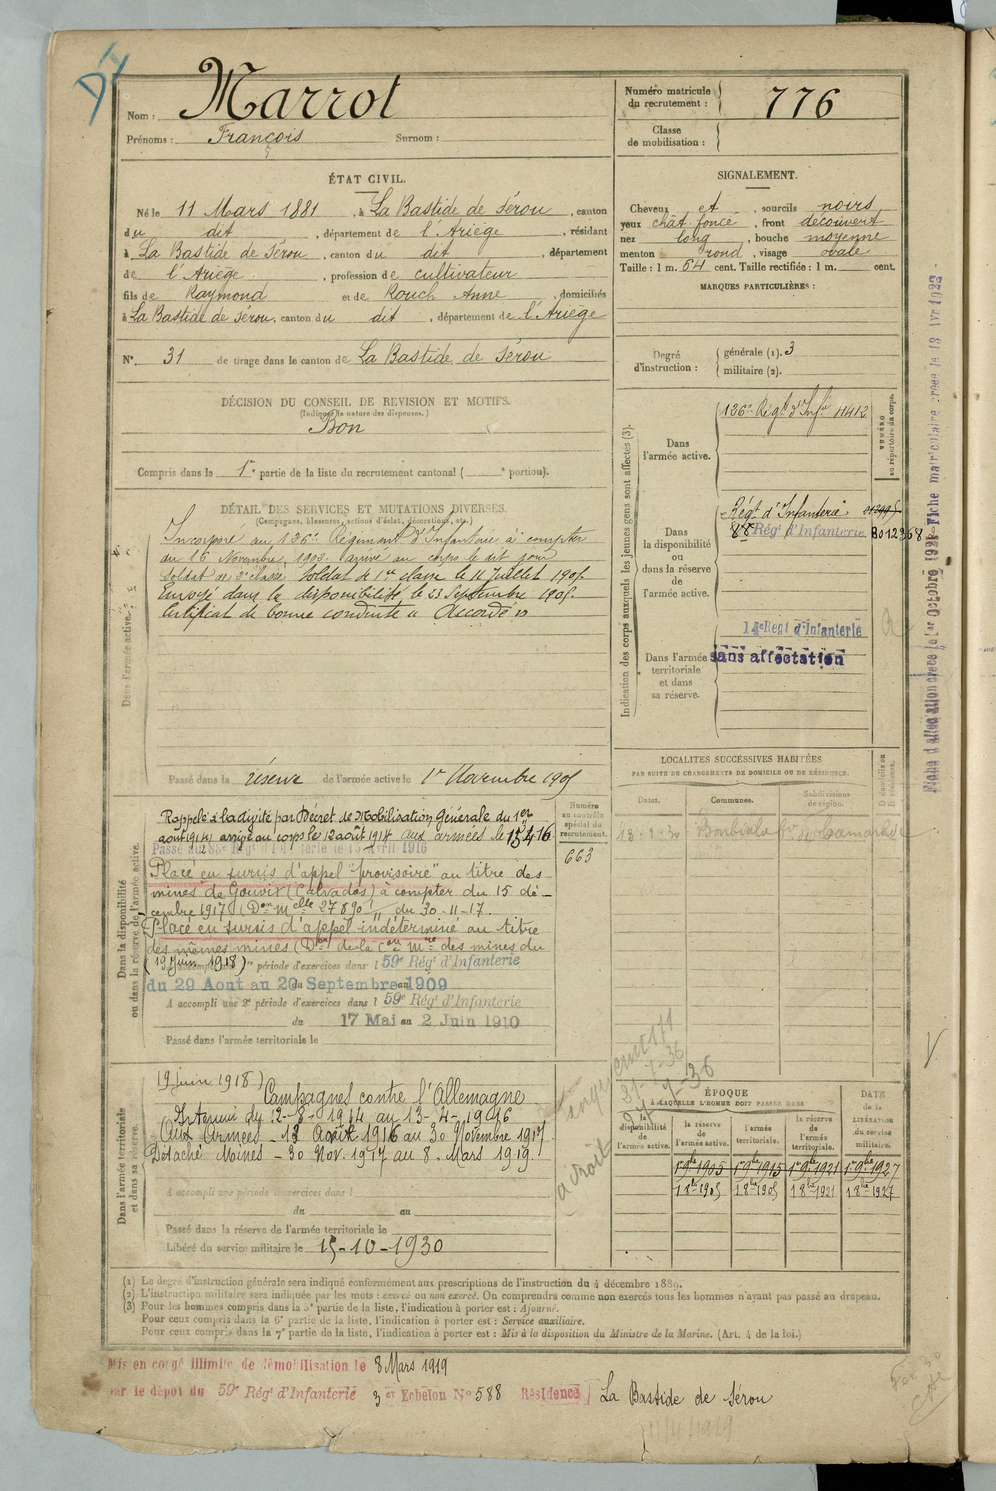 Nom : Marrot
Prénoms : François Surnom :
Numéro matricule du recrutement : 776
Classe de mobilisation :
ÉTAT CIVIL.
Né le 11 Mars 1881, à La Bastide de Sérou, canton
du dit, département de l'Ariège, résidant
à La Bastide de Sérou, canton du dit, département
de l'Ariège, profession de cultivateur
fils de Raymond et de Rouch Anne, domiciliés
à La Bastide de Sérou, canton du dit, département de l'Ariège
N° 31 de tirage dans le canton de La Bastide de Sérou
SIGNALEMENT.
Cheveux et, sourcils noirs
yeux chât. foncé, front découvert
nez long, bouche moyenne
menton rond, visage ovale
Taille : 1 m. 64 cent. Taille rectifiée : 1 m. cent.
MARQUES PARTICULIÈRES :
Degré d'instruction : générale (1). 3
militaire (2).
DÉCISION DU CONSEIL DE REVISION ET MOTIFS.
(Indiquer la nature des dispenses.)
Bon
Compris dans la 1re partie de la liste du recrutement cantonal ( e portion).
DÉTAIL DES SERVICES ET MUTATIONS DIVERSES.
(Campagnes, blessures, actions d'éclat, décorations, etc.)
Dans l'armée active.
Incorporé au 126e Régiment d'Infanterie à compter
du 16 Novembre 1903. arrivé au corps le dit jour
soldat de 2e classe. Soldat de 1re classe le 14 Juillet 1905.
Envoyé dans la disponibilité le 23 Septembre 1905.
Certificat de bonne conduite « Accordé »
Passé dans la réserve de l'armée active le 1er Novembre 1905
Indication des corps auxquels les jeunes gens sont affectés (3).
NUMÉRO au répertoire du corps.
Dans l'armée active.
126e Régt d'Infie 11412
Dans la disponibilité ou dans la réserve de l'armée active.
Régt d'Infanterie.
88e Régt d'Infanterie B012368
Dans l'armée territoriale et dans sa réserve.
14e Régt d'Infanterie
sans affectation
LOCALITÉS SUCCESSIVES HABITÉES
PAR SUITE DE CHANGEMENTS DE DOMICILE OU DE RÉSIDENCE.
Dates. Communes. Subdivisions de région. D domicile ou R résidence.
Dans la disponibilité ou dans la réserve de l'armée active.
Numéro au contrôle spécial du recrutement.
663
Rappelé à l'activité par Décret de Mobilisation Générale du 1er
août 1914, arrivé au corps le 12 août 1914 aux armées le 13.4.16
Passé au 88e Régt d'Infanterie le 13 Avril 1916
Placé en sursis d'appel "provisoire" au titre des
mines de Gouvix (Calvados) à compter du 15 dé-
cembre 1917 du 30-11-17.
Placé en sursis d'appel indéterminé au titre
des mêmes mines des mines du
(19 juin 1918)
A accompli une 1re période d'exercices dans l 59e Régt d'Infanterie
du 29 Aout au 20 Septembre 1909
A accompli une 2e période d'exercices dans l 59e Régt d'Infanterie
du 17 Mai au 2 Juin 1910
Passé dans l'armée territoriale le
Dans l'armée territoriale et dans sa réserve.
19 juin 1918)
Campagnes contre l'Allemagne
Intérieur du 12-8-1914 au 13-4-1916
Aux Armées - 13 Août 1916 au 30 Novembre 1917
Détaché Mines - 30 Nov. 1917 au 8. Mars 1919.
A accompli une période d'exercices dans l
du au
Passé dans la réserve de l'armée territoriale le
Libéré du service militaire le 15-10-1930
ÉPOQUE
À LAQUELLE L'HOMME DOIT PASSER DANS
DATE de la LIBÉRATION du service militaire.
la disponibilité de l'armée active. la réserve de l'armée active. l'armée territoriale. la réserve de l'armée territoriale.
1er 9bre 1905 1er 9bre 1915 1er 9bre 1921 1er 9bre 1927
1 8bre 1905 1 8bre 1905 1 8bre 1921 1 8bre 1927
(1) Le degré d'instruction générale sera indiqué conformément aux prescriptions de l'instruction du 4 décembre 1889.
(2) L'instruction militaire sera indiquée par les mots : exercé ou non exercé. On comprendra comme non exercés tous les hommes n'ayant pas passé au drapeau.
(3) Pour les hommes compris dans la 5e partie de la liste, l'indication à porter est : Ajourné.
Pour ceux compris dans la 6e partie de la liste, l'indication à porter est : Service auxiliaire.
Pour ceux compris dans la 7e partie de la liste, l'indication à porter est : Mis à la disposition du Ministre de la Marine. (Art. 4 de la loi.)
Mis en congé illimité de démobilisation le 8 Mars 1919
par le dépôt du 59e Régt d'Infanterie 3 er Echelon No 588 Résidence La Bastide de Sérou